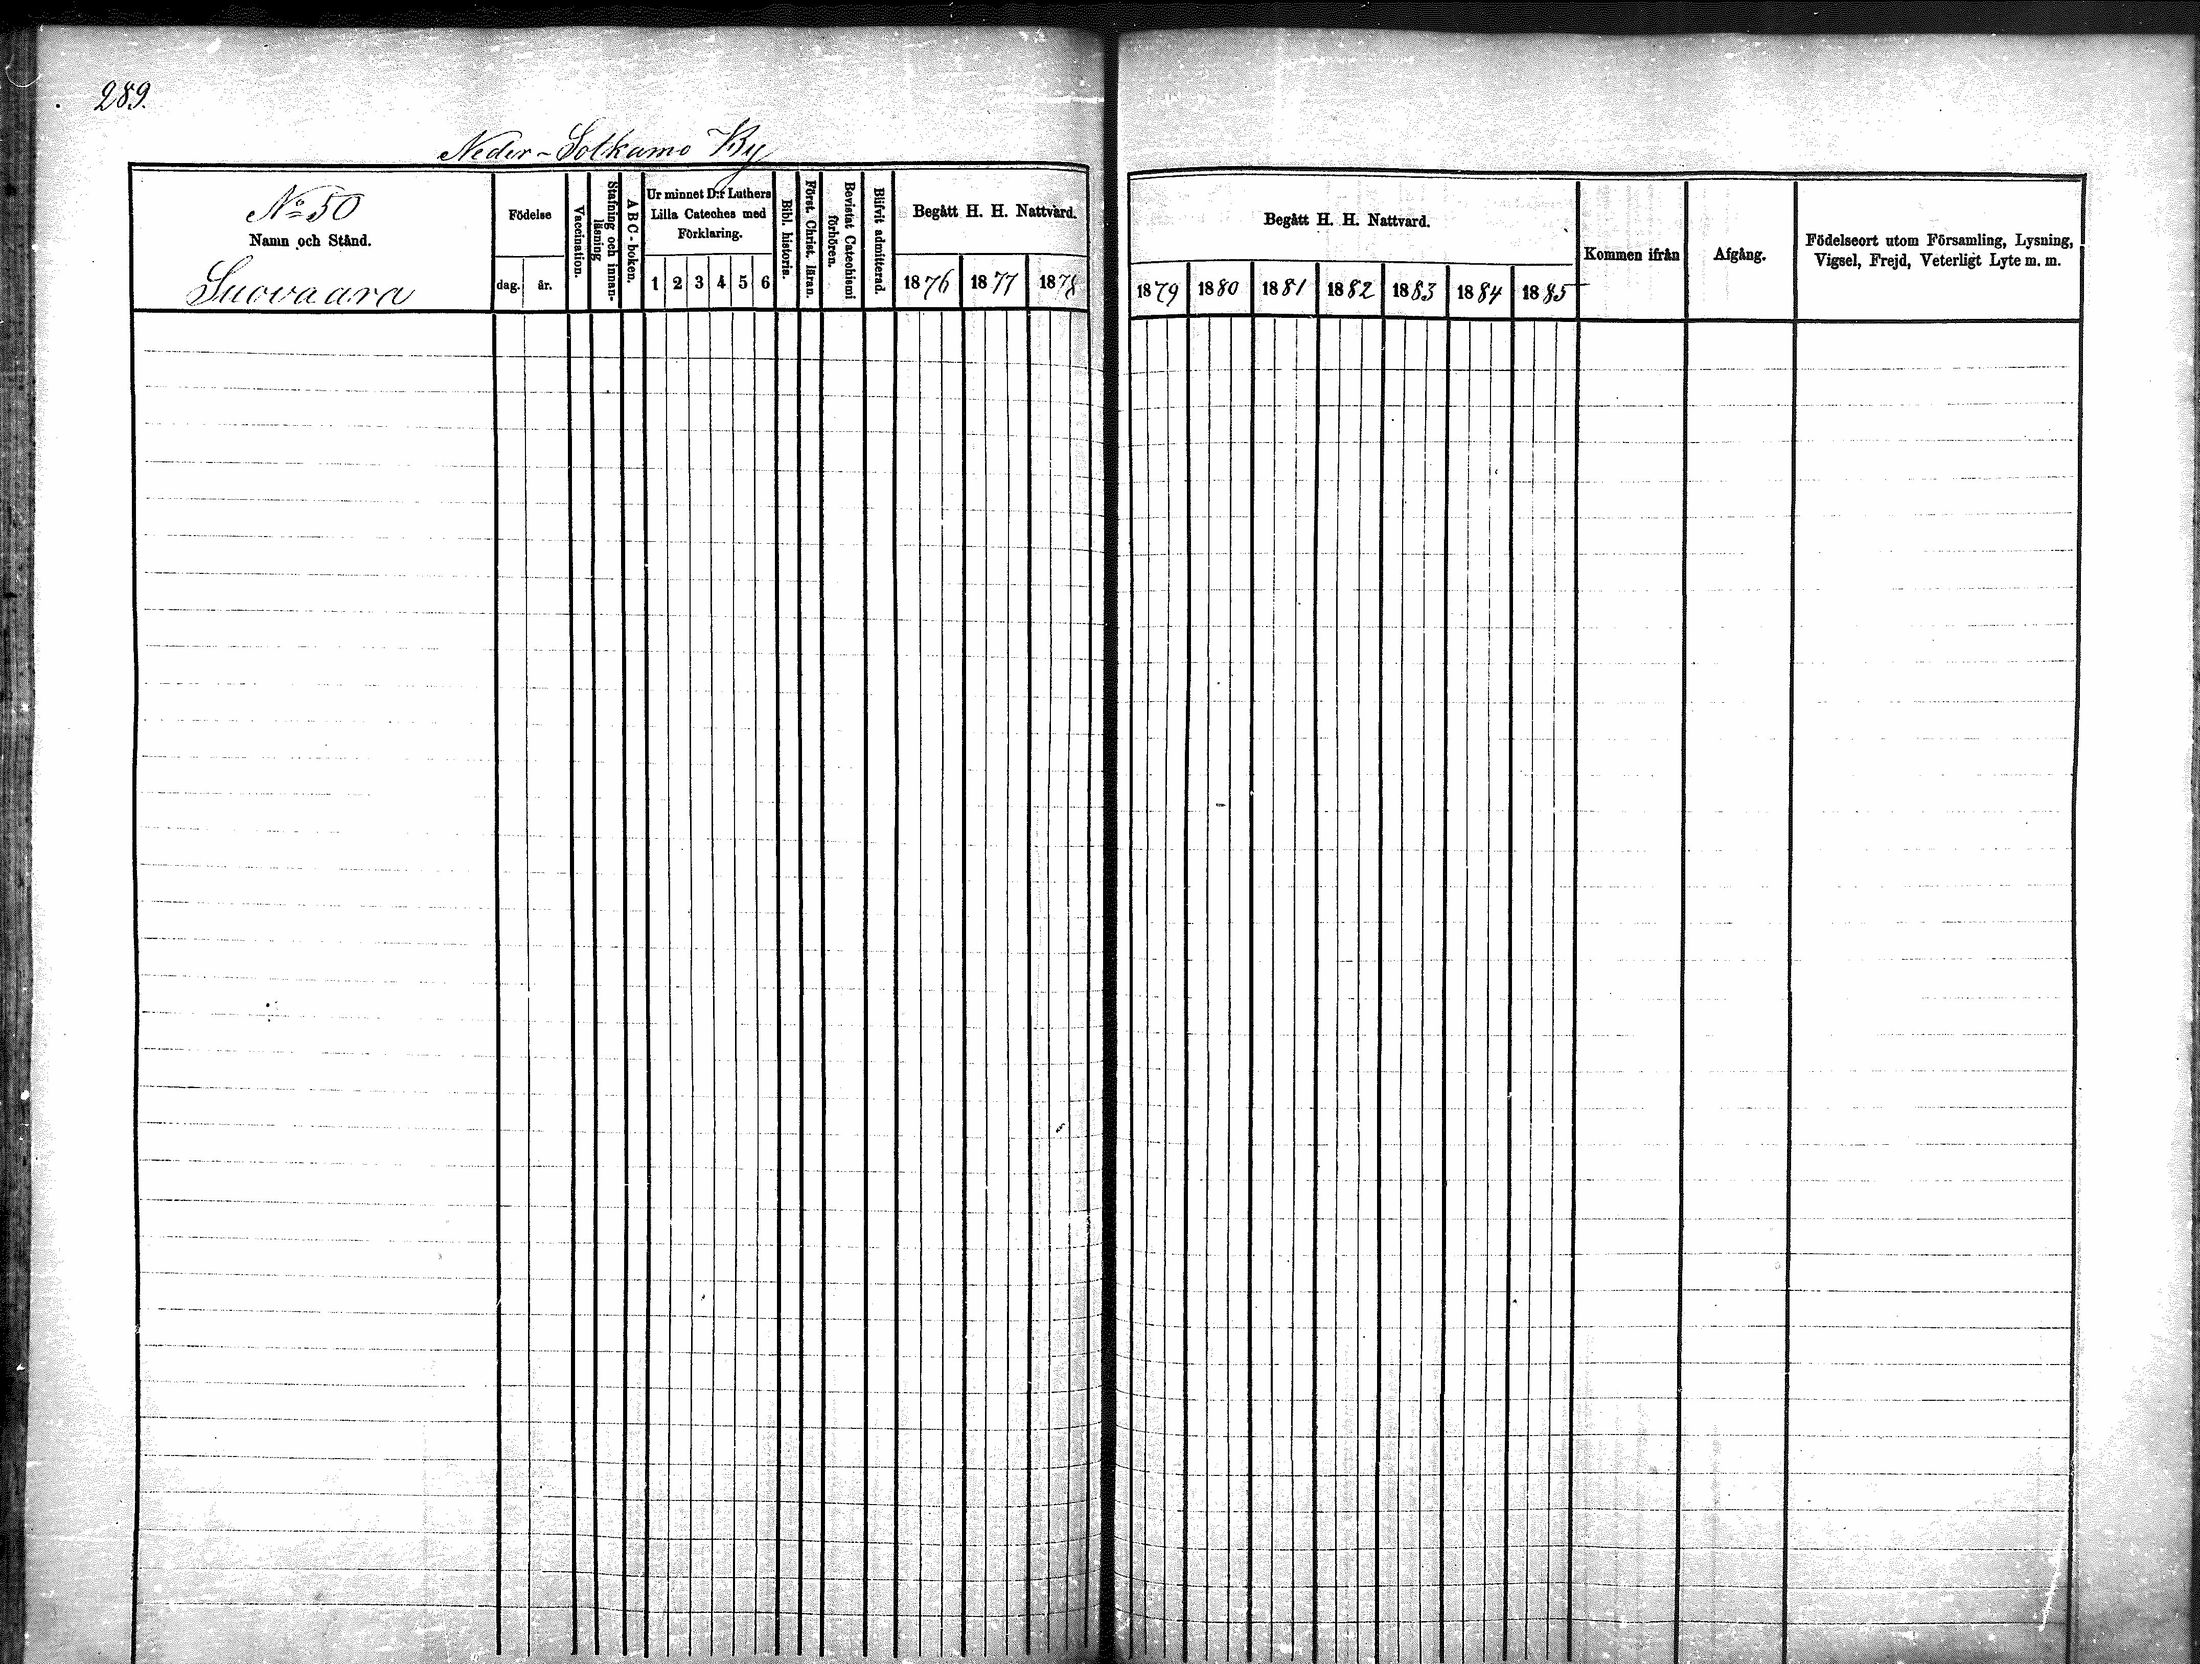 289.
Neder-Sotkamo By
No 50
Namn och Stånd.
Suovaara
Födelse
dag. år.
Vaccination.
Stafning och innan-
läsning
A B C-boken.
Ur minnet D:r Luthers
Lilla Cateches med
Förklaring.
1 2 3 4 5 6
Bibl. historia.
Först. Christ. läran.
Bevistat Catechismi
förhören.
Blifvit admitterad.
Begått H. H. Nattvard.
1876 1877 1878
Begått H. H. Nattvard.
1879 1880 1881 1882 1883 1884 1885
Kommen ifrån
Afgång.
Födelseort utom Församling, Lysning,
Vigsel, Frejd, Veterligt Lyte m. m.